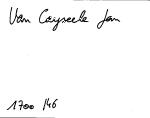 Van Cayseele Jan
1700 146